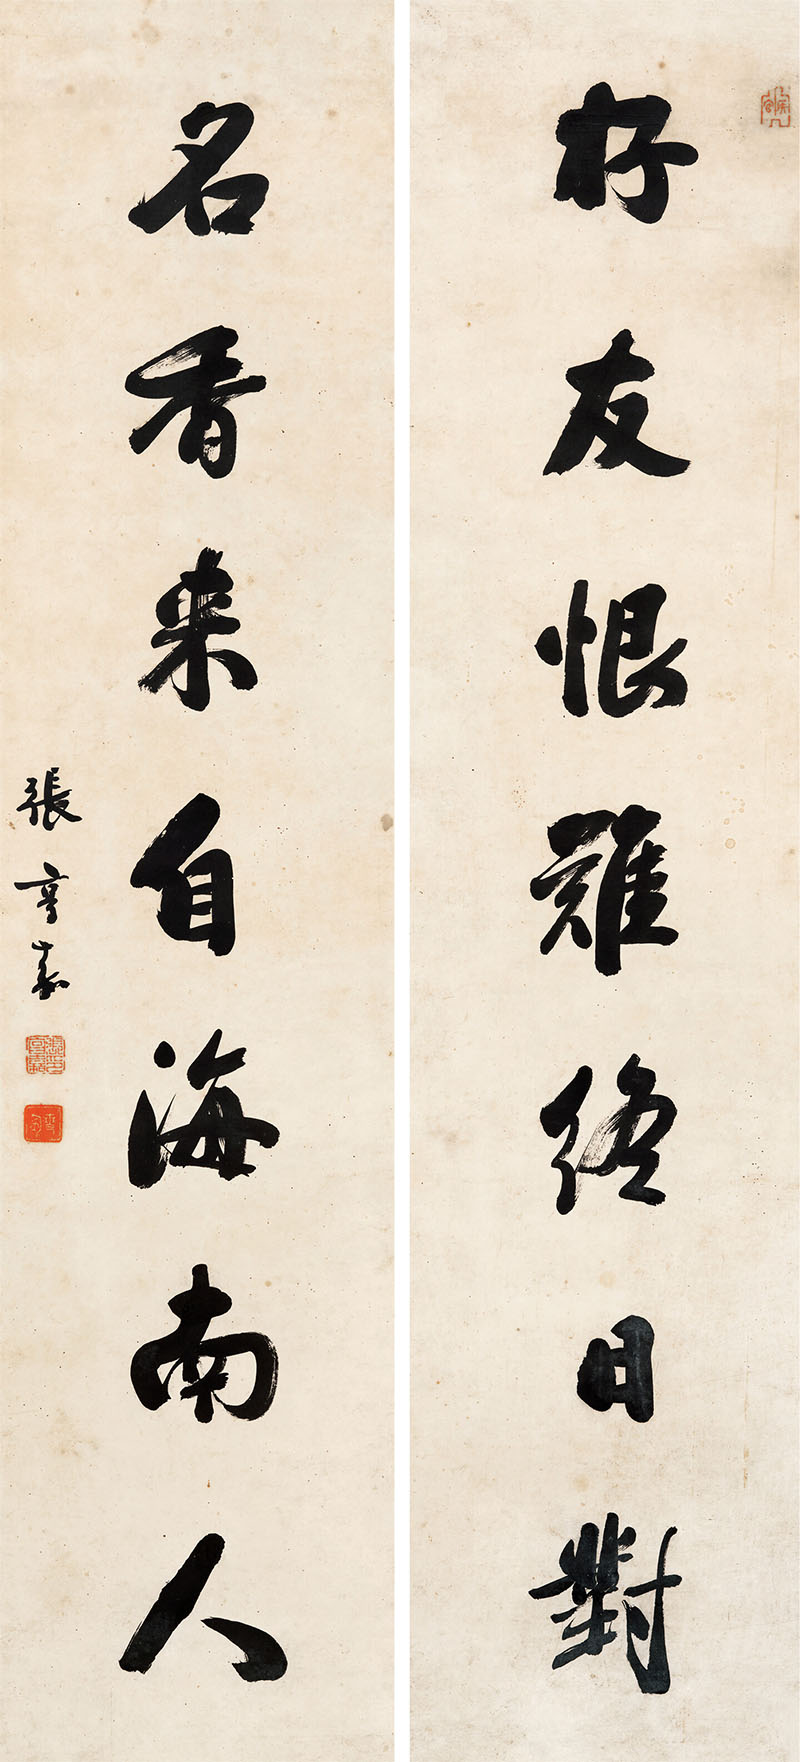 好友恨難終日對
名香來自海南人
張亨嘉